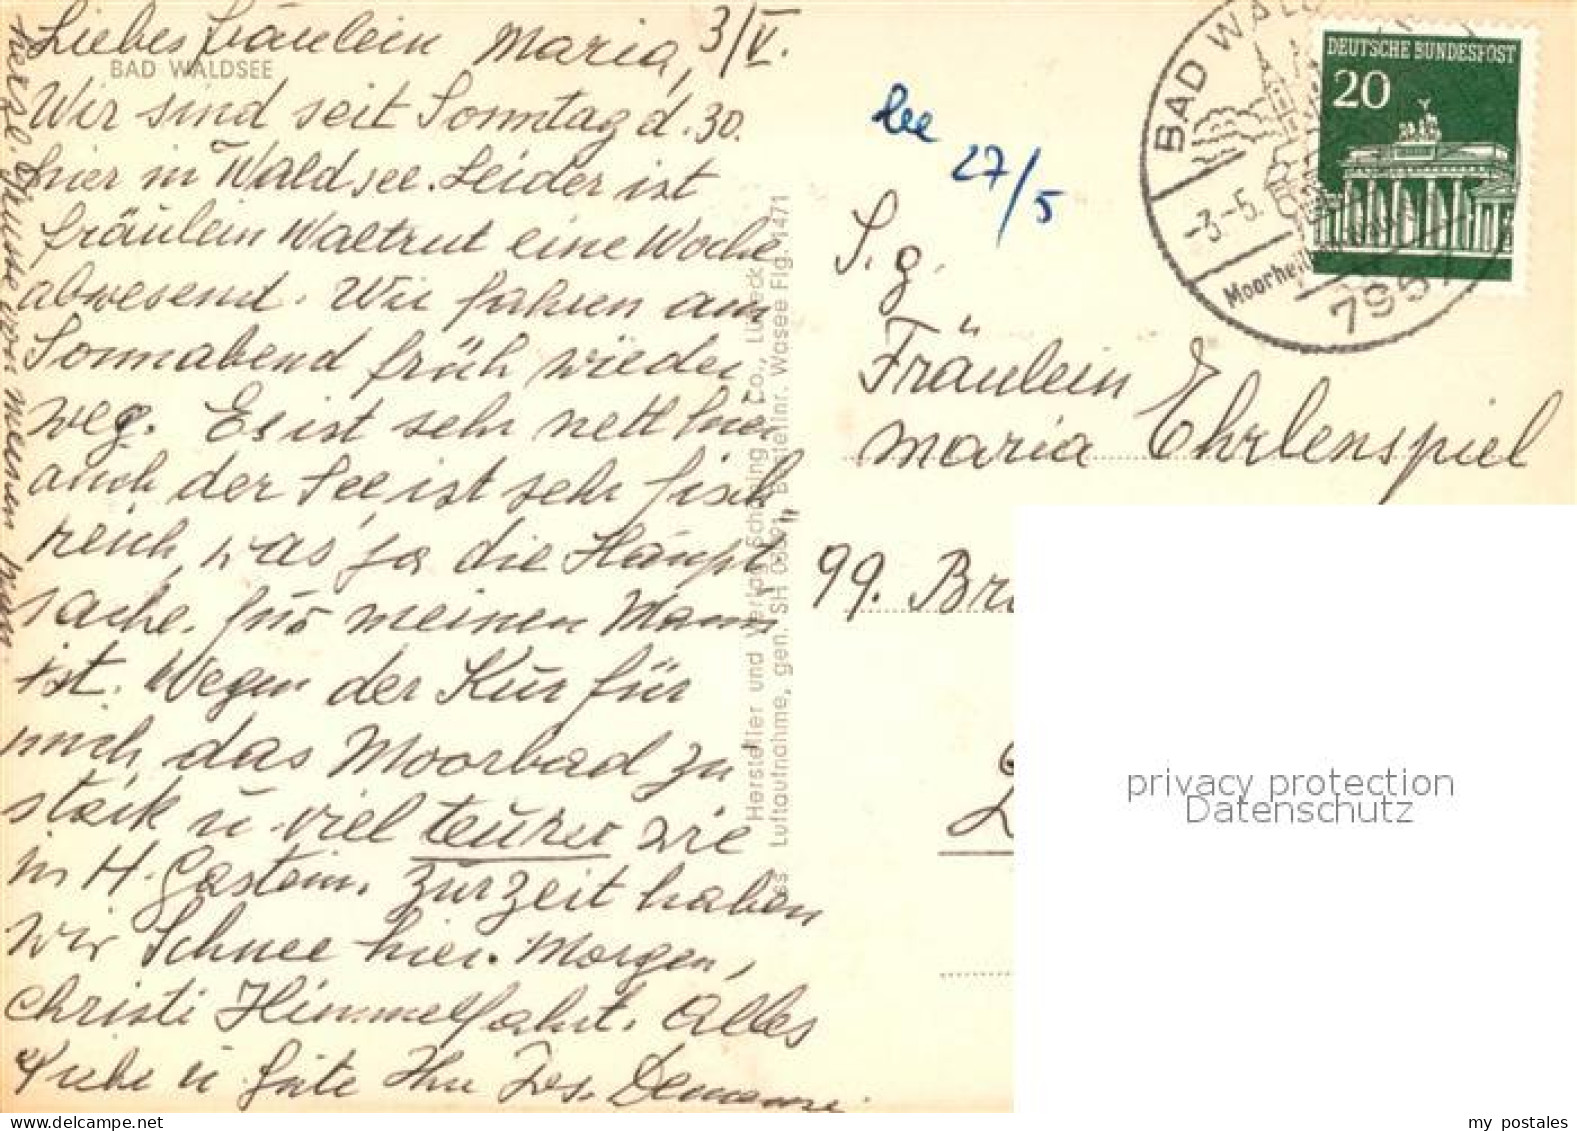 Liebes Fräulein Maria, 3/V.
BAD WALDSEE
Wir sind seit Sonntag d. 30.
hier in Waldsee. Leider ist
Fräulein Waltrut eine Woche
abwesend. Wir fahren am
Sonnabend früh wieder
weg. Es ist sehr nett hier
auch der See ist sehr fisch
reich, was ja die Haupt
sache für meinen Mann
ist. Wegen der Kur für
mich das Moorbad zu
stark u. viel teurer wie
in H. Gastein. Zurzeit haben
wir Schnee hier. Morgen,
Christi Himmelfahrt. Alles
Liebe u. Gute Ihr
Herzl. Grüsse von meinem Mann
Hersteller und Verlag Schöning & Co., Lübeck
Luftaufnahme, gen. SH Bestellnr. Wasee Flg. 1471
27/5
BAD WALDSEE
-3.-5.
Moorheilbad
7967
DEUTSCHE BUNDESPOST
20
S. g.
Fräulein
Maria Ehrlenspiel
99. Br
privacy protection
Datenschutz
my postales